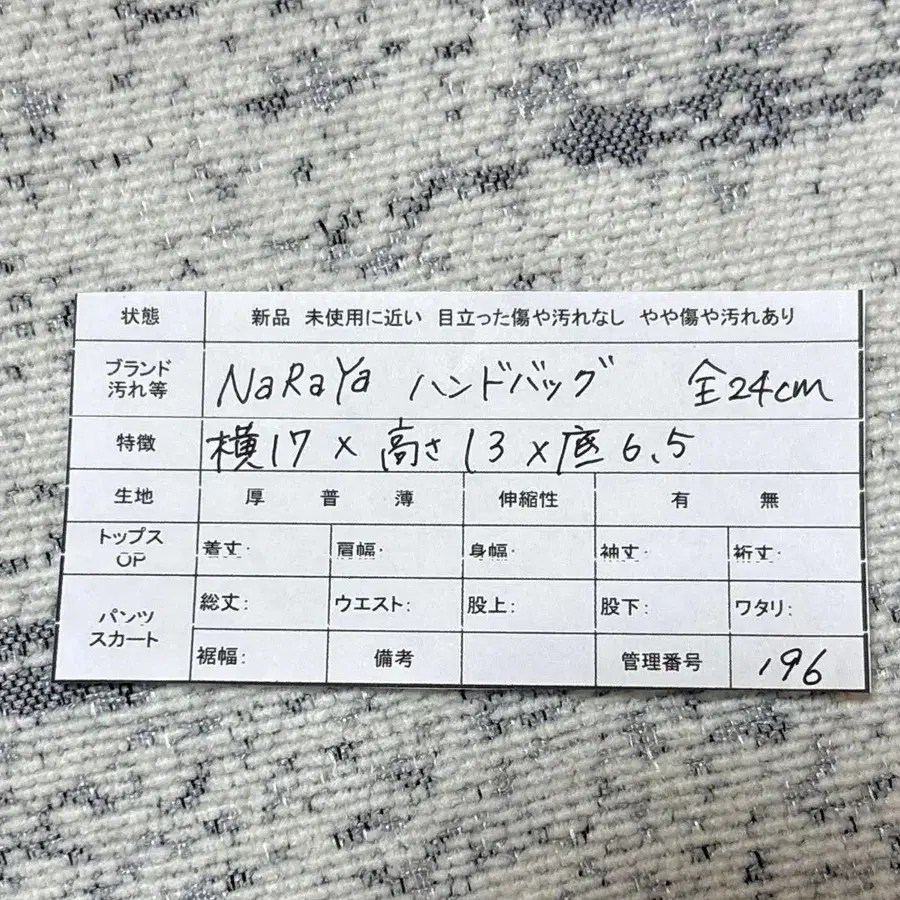 状態 新品 未使用に近い 目立った傷や汚れなし やや傷や汚れあり
ブランド
汚れ等 NaRaYa ハンドバッグ 全24cm
特徴 横17×高さ13×底6.5
生地 厚 普 薄 伸縮性 有 無
トップス
OP 着丈: 肩幅: 身幅: 袖丈: 裄丈:
パンツ
スカート 総丈: ウエスト: 股上: 股下: ワタリ:
裾幅: 備考 管理番号 196